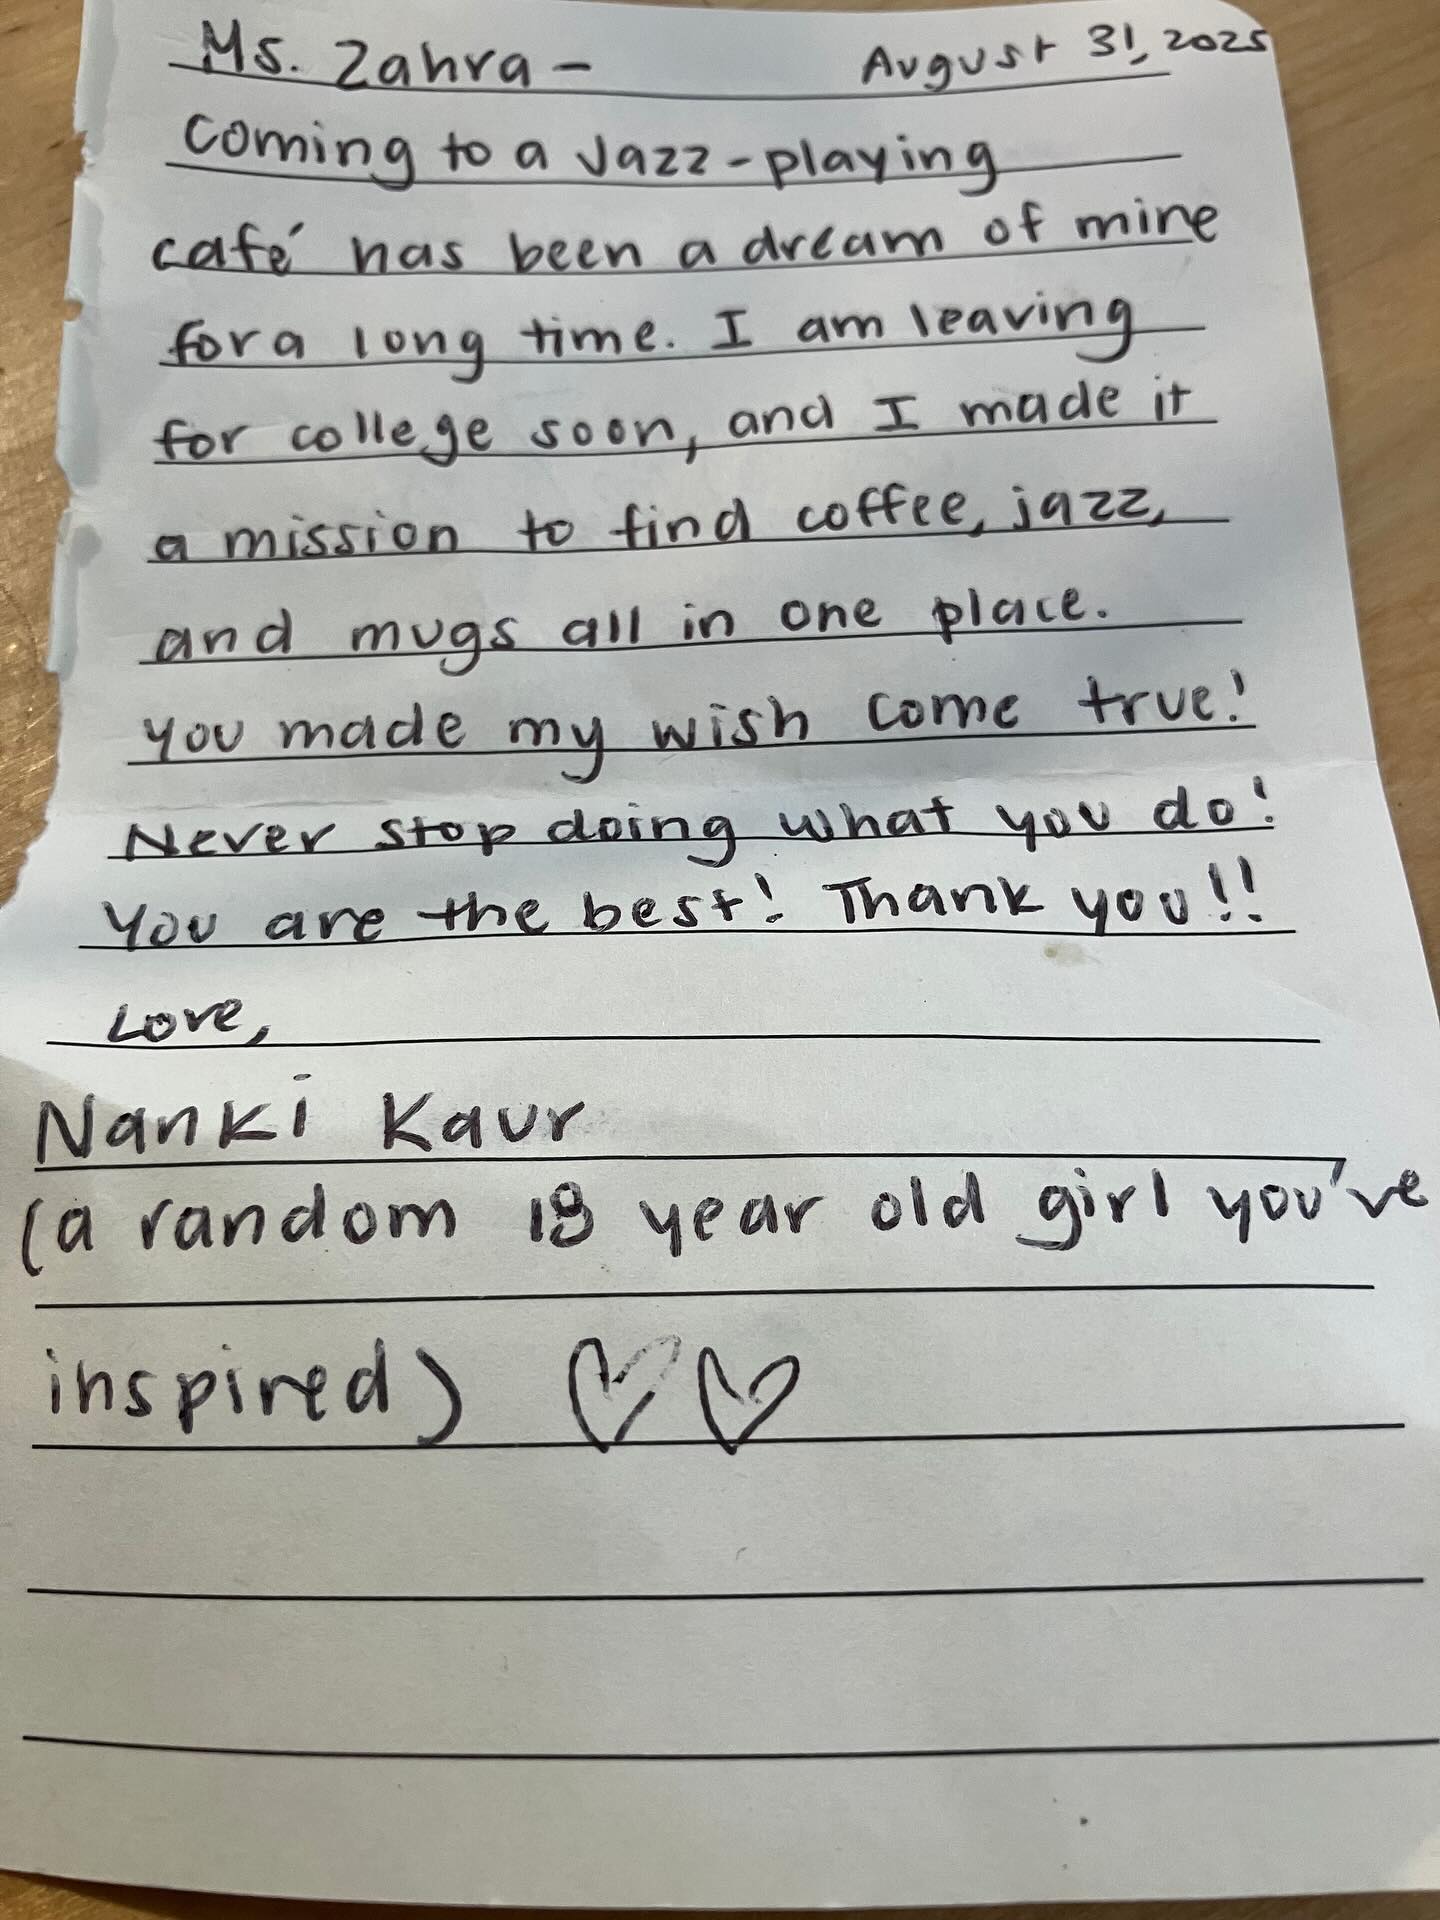 Ms. Zahra - August 31, 2025
Coming to a Jazz-playing
café has been a dream of mine
for a long time. I am leaving
for college soon, and I made it
a mission to find coffee, jazz,
and mugs all in one place.
You made my wish come true!
Never stop doing what you do!
You are the best! Thank you!!
Love,
Nanki Kaur
(a random 18 year old girl you've
inspired) ♡♡